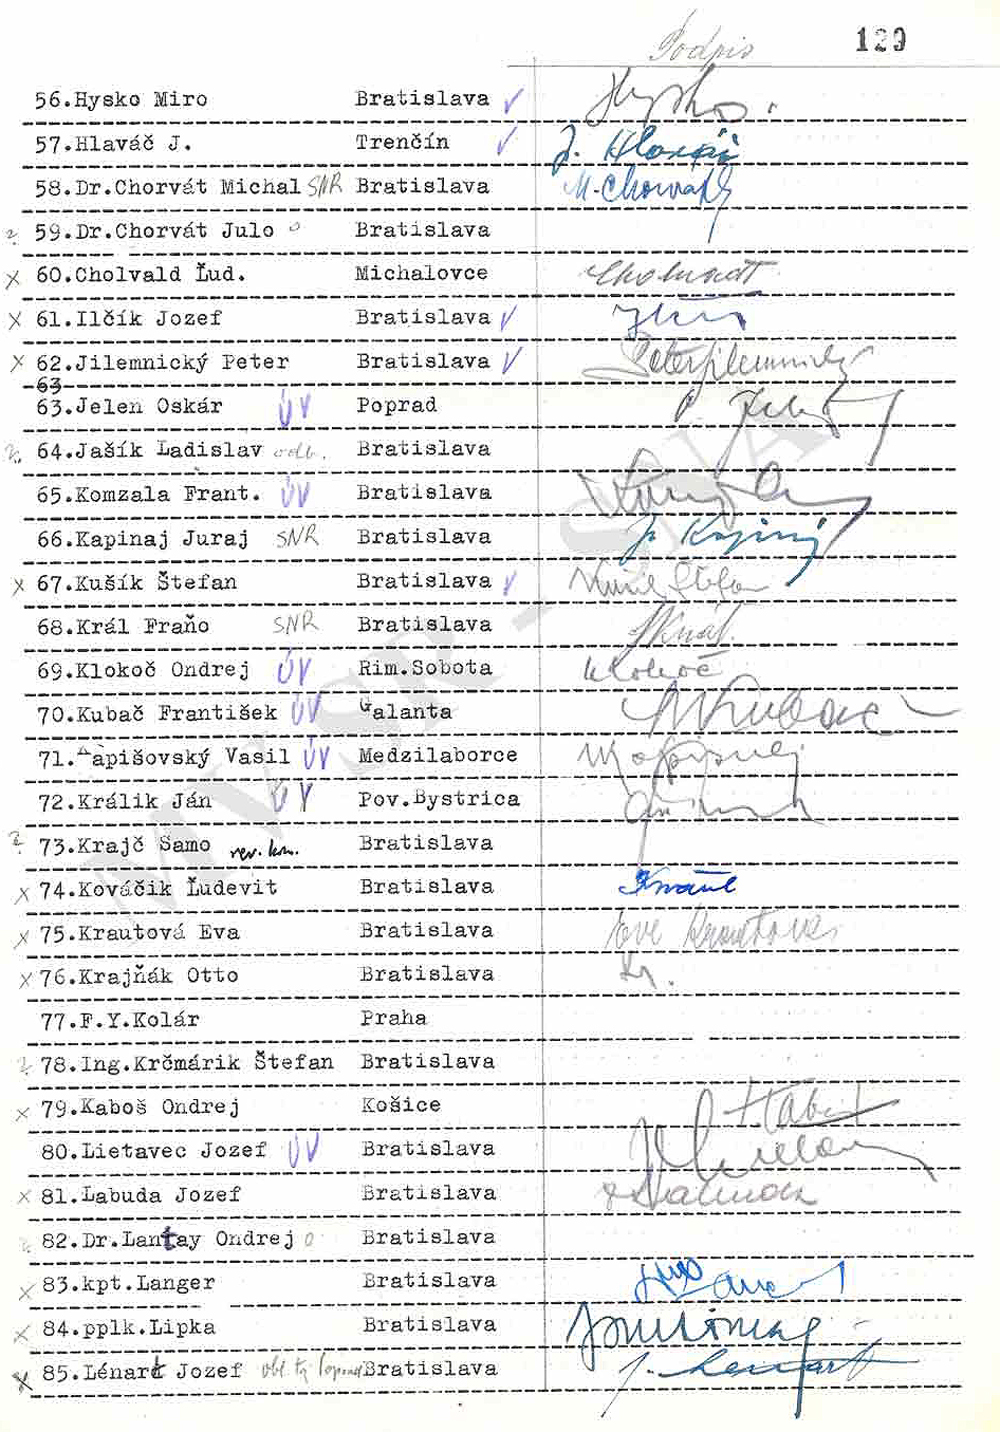 Podpis 129
56.Hysko Miro Bratislava Hysko.
57.Hlaváč J. Trenčín J. Hlaváč
58.Dr.Chorvát Michal SNR Bratislava M.Chorváth
59.Dr.Chorvát Julo Bratislava
60.Cholvald Ľud. Michalovce
61.Ilčík Jozef Bratislava
62.Jilemnický Peter Bratislava Peter Jilemnický
63
63.Jelen Oskár ÚV Poprad
64.Jašík Ladislav odb. Bratislava
65.Komzala Frant. ÚV Bratislava
66.Kapinaj Juraj SNR Bratislava
67.Kušík Štefan Bratislava Kušík Štefan
68.Král Fraňo SNR Bratislava
69.Klokoč Ondrej ÚV Rim.Sobota Klokoč
70.Kubač František ÚV Galanta Kubač
71.Kapišovský Vasil ÚV Medzilaborce
72.Králik Ján ÚV Pov.Bystrica
73.Krajč Samo rev.kom. Bratislava
74.Kováčik Ľudevit Bratislava
75.Krautová Eva Bratislava Eva Krautová
76.Krajňák Otto Bratislava Kr.
77.F.Y.Kolár Praha
78.Ing.Krčmárik Štefan Bratislava
79.Kaboš Ondrej Košice
80.Lietavec Jozef ÚV Bratislava
81.Labuda Jozef Bratislava
82.Dr.Lantay Ondrej Bratislava
83.kpt.Langer Bratislava
84.pplk.Lipka Bratislava
85.Lénart Jozef Bratislava J. Lenárt
MV SR - SNA